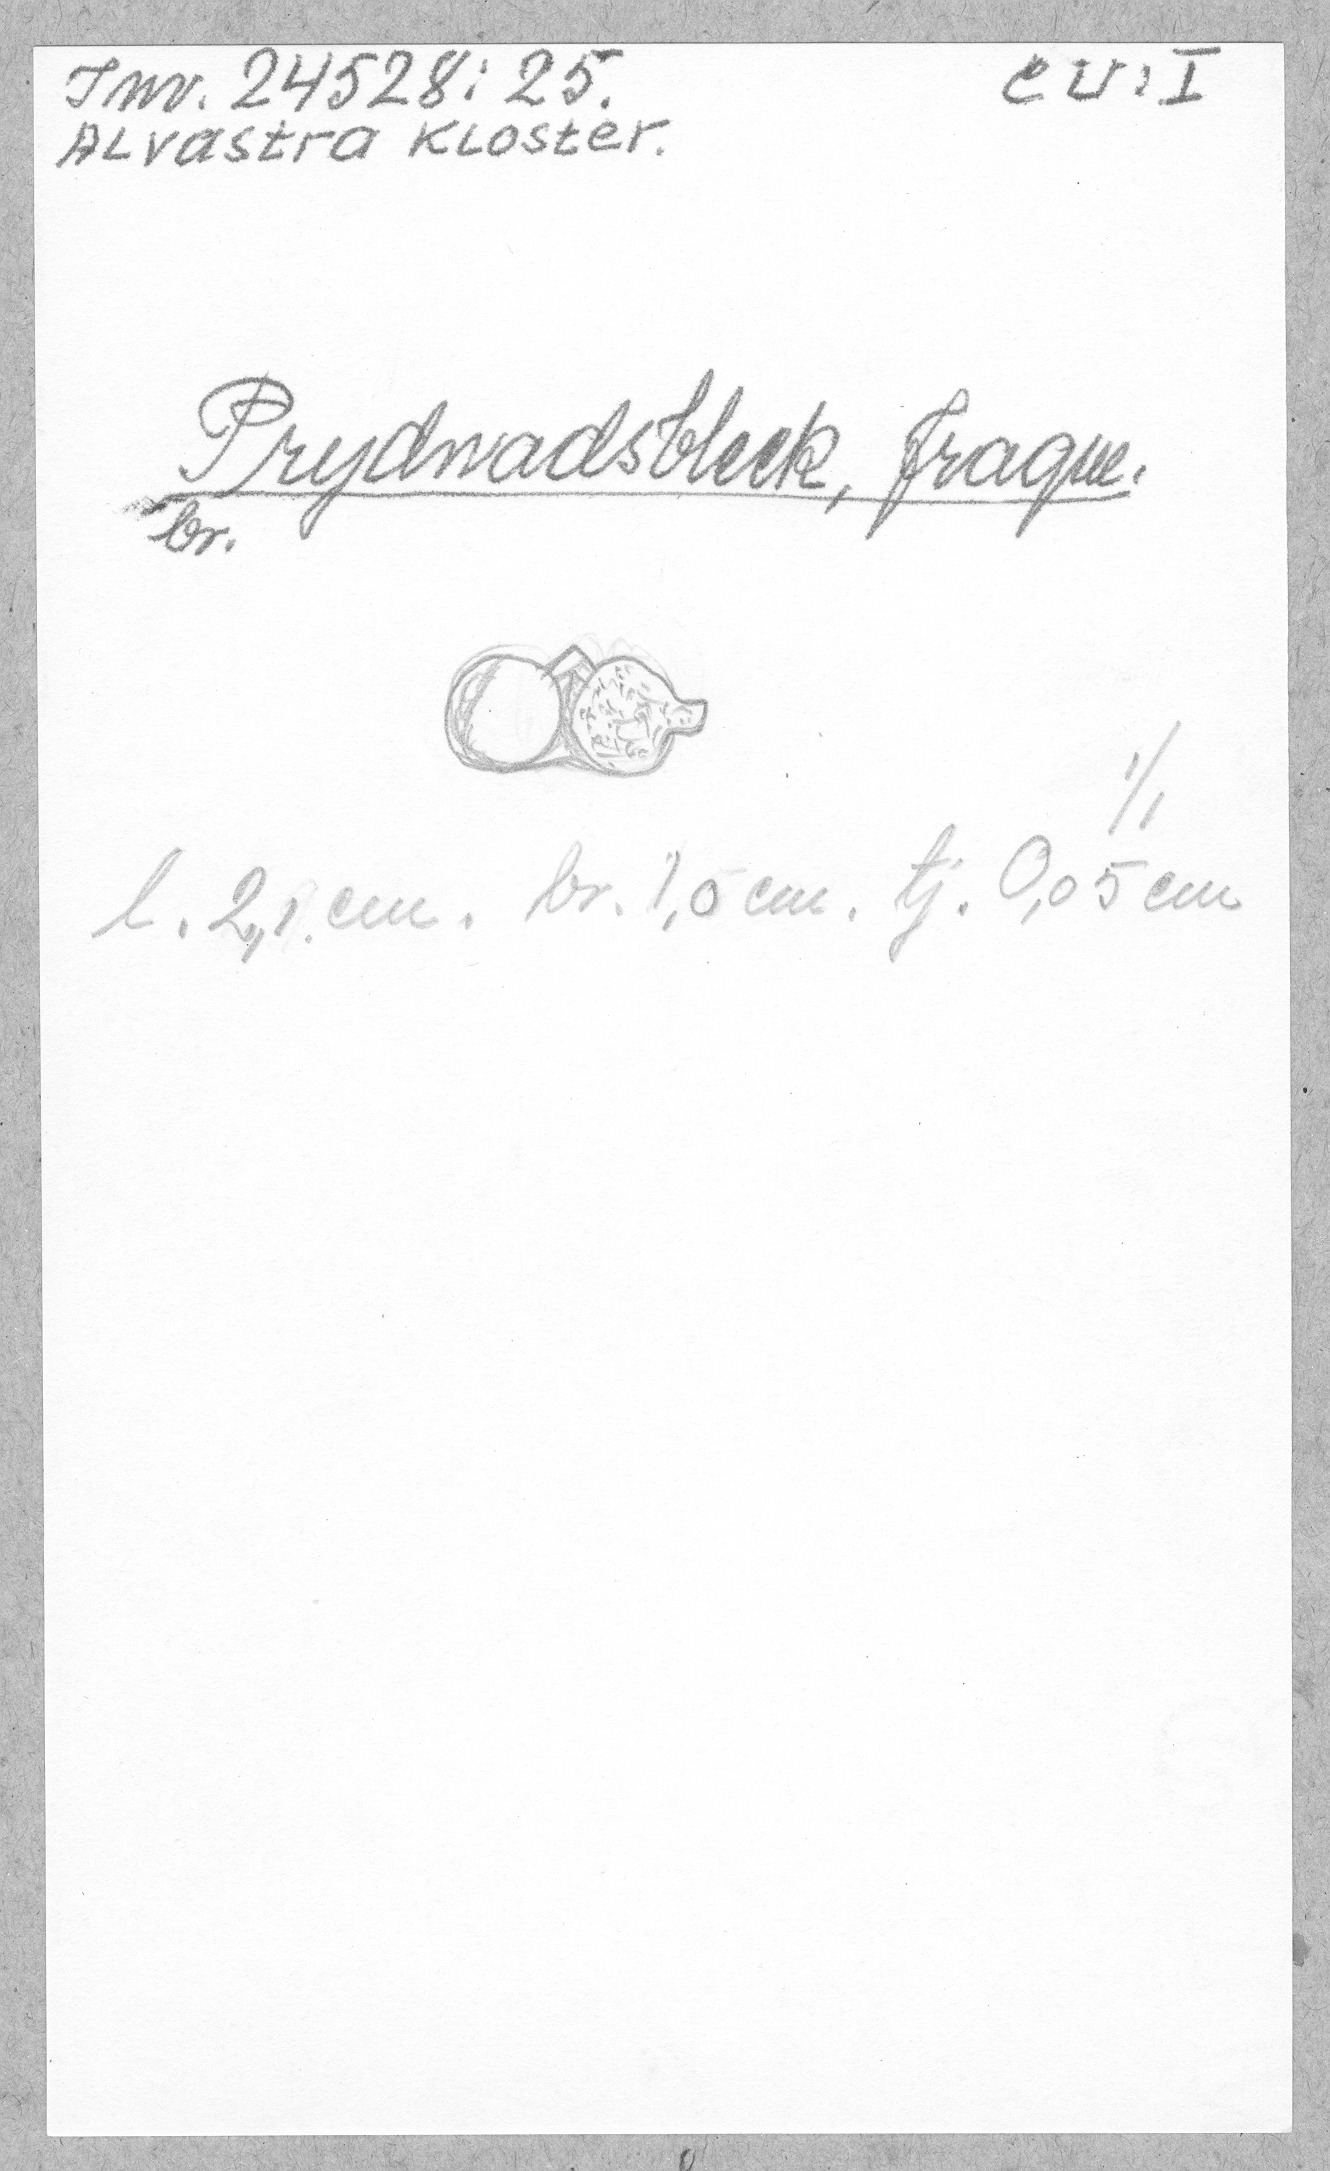 Inv. 24528:25.
CU:I
Alvastra Kloster.
Prydnadsbleck, fragm.
br.
1/1
l. 2,1 cm. br. 1,0 cm. tj. 0,05 cm